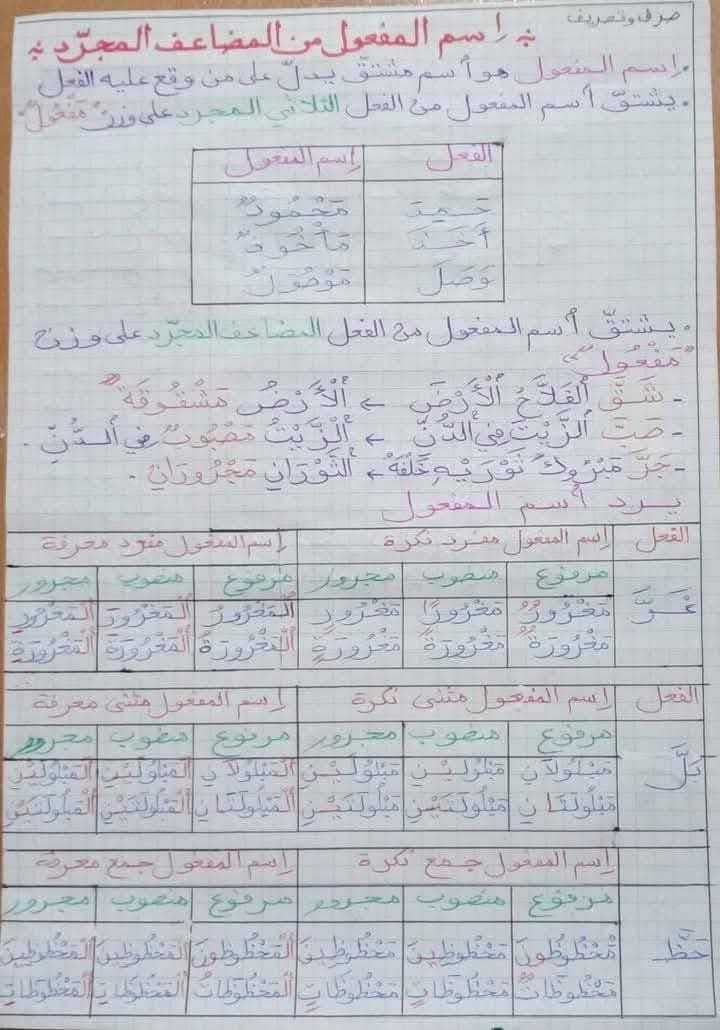 صرف وتصريف
إسم المفعول من المضاعف المجرّد
• إسم المفعول هو أسم مشتقّ يدلّ على من وقع عليه الفعل
• يشتقّ أسم المفعول من الفعل الثلاثي المجرد على وزن "مَفْعُولٌ"
الفعل إسم المفعول
حَمِدَ مَحْمُودٌ
أَخَذَ مَأْخُوذٌ
وَصَلَ مَوْصُولٌ
• يشتقّ أسم المفعول من الفعل المضاعف المجرّد على وزن
"مَفْعُولٌ"
- شَقَّ ٱلْفَلَّاحُ ٱلْأَرْضَ ← ٱلْأَرْضُ مَشْقُوقَةٌ
- صَبَّ ٱلزَّيْتَ فِي ٱلدَّنِّ ← ٱلزَّيْتُ مَصْبُوبٌ فِي ٱلدَّنِّ.
- جَرَّ مَبْرُوكٌ ثَوْرَيْهِ خَلْفَهُ ← الثَّوْرَانِ مَجْرُورَانِ.
يرد أسم المفعول
الفعل إسم المفعول مفرد نكرة إسم المفعول مفرد معرفة
مرفوع منصوب مجرور مرفوع منصوب مجرور
غَرَّ مَغْرُورٌ مَغْرُورًا مَغْرُورٍ ٱلْمَغْرُورُ ٱلْمَغْرُورَ ٱلْمَغْرُورِ
مَغْرُورَةٌ مَغْرُورَةً مَغْرُورَةٍ ٱلْمَغْرُورَةُ ٱلْمَغْرُورَةَ ٱلْمَغْرُورَةِ
الفعل إسم المفعول مثنى نكرة إسم المفعول مثنى معرفة
مرفوع منصوب مجرور مرفوع منصوب مجرور
بَلَّ مَبْلُولَانِ مَبْلُولَيْنِ مَبْلُولَيْنِ ٱلْمَبْلُولَانِ ٱلْمَبْلُولَيْنِ ٱلْمَبْلُولَيْنِ
مَبْلُولَتَانِ مَبْلُولَتَيْنِ مَبْلُولَتَيْنِ ٱلْمَبْلُولَتَانِ ٱلْمَبْلُولَتَيْنِ ٱلْمَبْلُولَتَيْنِ
إسم المفعول جمع نكرة إسم المفعول جمع معرفة
مرفوع منصوب مجرور مرفوع منصوب مجرور
حَظَّ مَحْظُوظُونَ مَحْظُوظِينَ مَحْظُوظِينَ ٱلْمَحْظُوظُونَ ٱلْمَحْظُوظِينَ ٱلْمَحْظُوظِينَ
مَحْظُوظَاتٌ مَحْظُوظَاتٍ مَحْظُوظَاتٍ ٱلْمَحْظُوظَاتُ ٱلْمَحْظُوظَاتِ ٱلْمَحْظُوظَاتِ